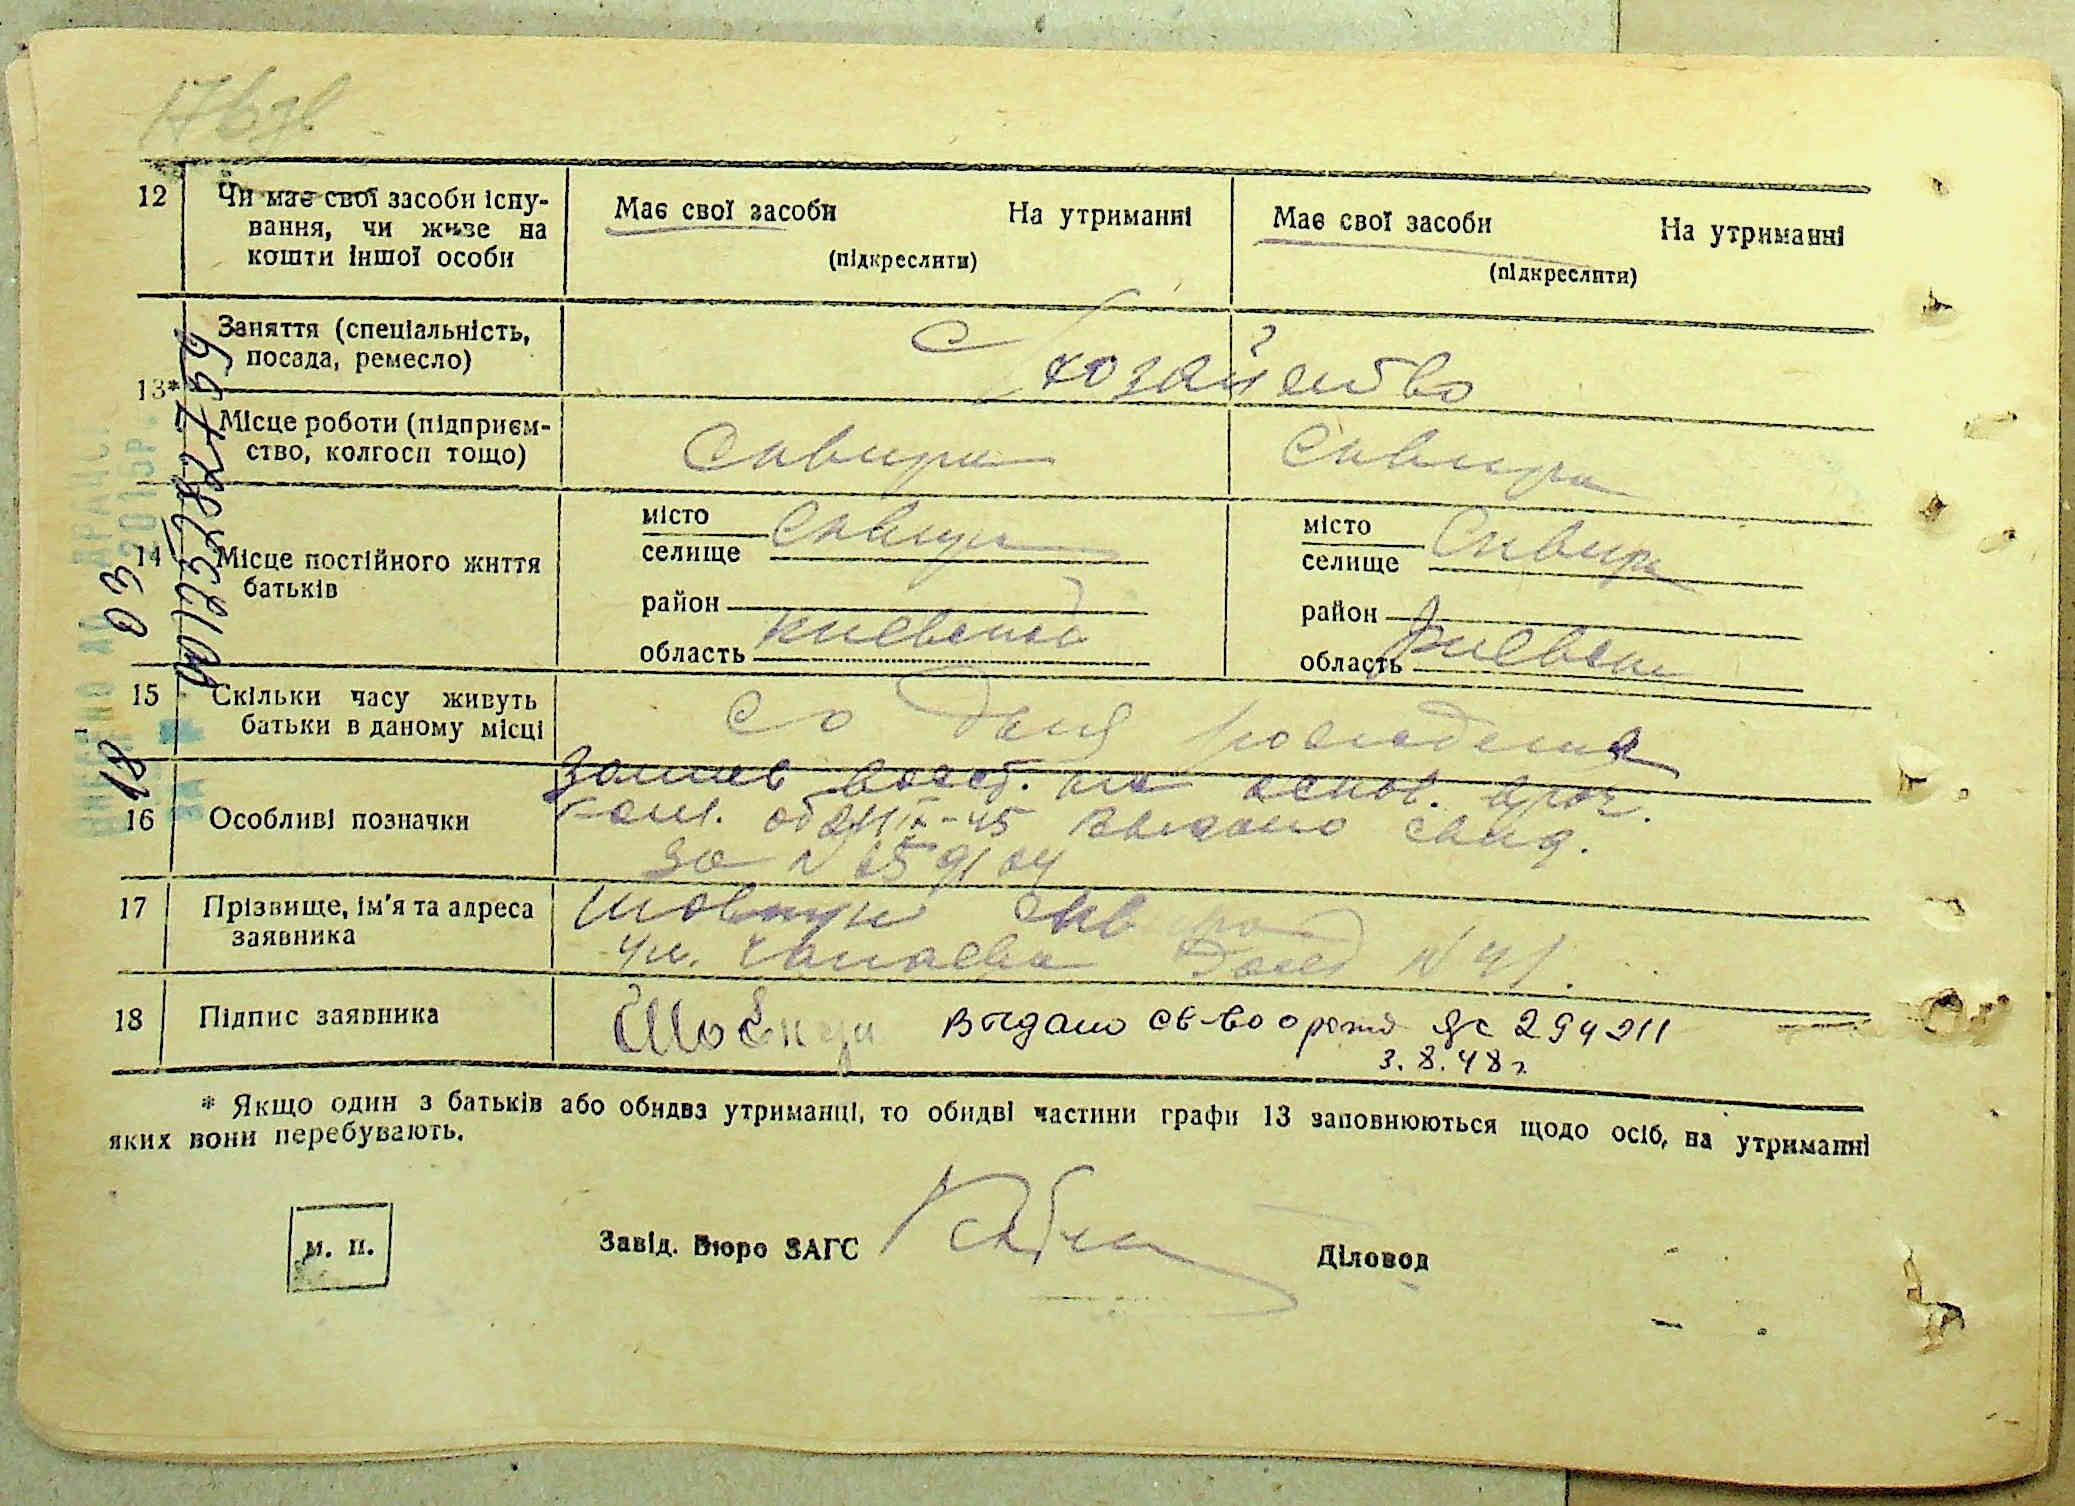 176зв
12 Чи має свої засоби існу-
вання, чи живе на
кошти іншої особи
Має свої засоби На утриманні
(підкреслити)
Має свої засоби На утриманні
(підкреслити)
13*
Заняття (спеціальність,
посада, ремесло)
С/хозяйство
Місце роботи (підприєм-
ство, колгосп тощо)
Сквира Сквира
14 Місце постійного життя
батьків
місто
селище Сквира
район
область Киевской
місто
селище Сквира
район
область Киевск
15 Скільки часу живуть
батьки в даному місці
со дня рождения
16 Особливі позначки
Запись восст. на основ. врач.
за N
выдано свид.
17 Прізвище, ім'я та адреса
заявника
ул. Чапаева дом N 41.
18 Підпис заявника
Выдано св-во о рожд 294211
3.8.48 г
* Якщо один з батьків або обидва утриманці, то обидві частини графи 13 заповнюються щодо осіб, на утриманні
яких вони перебувають.
м. п.
Завід. Бюро ЗАГС
Діловод
18 03